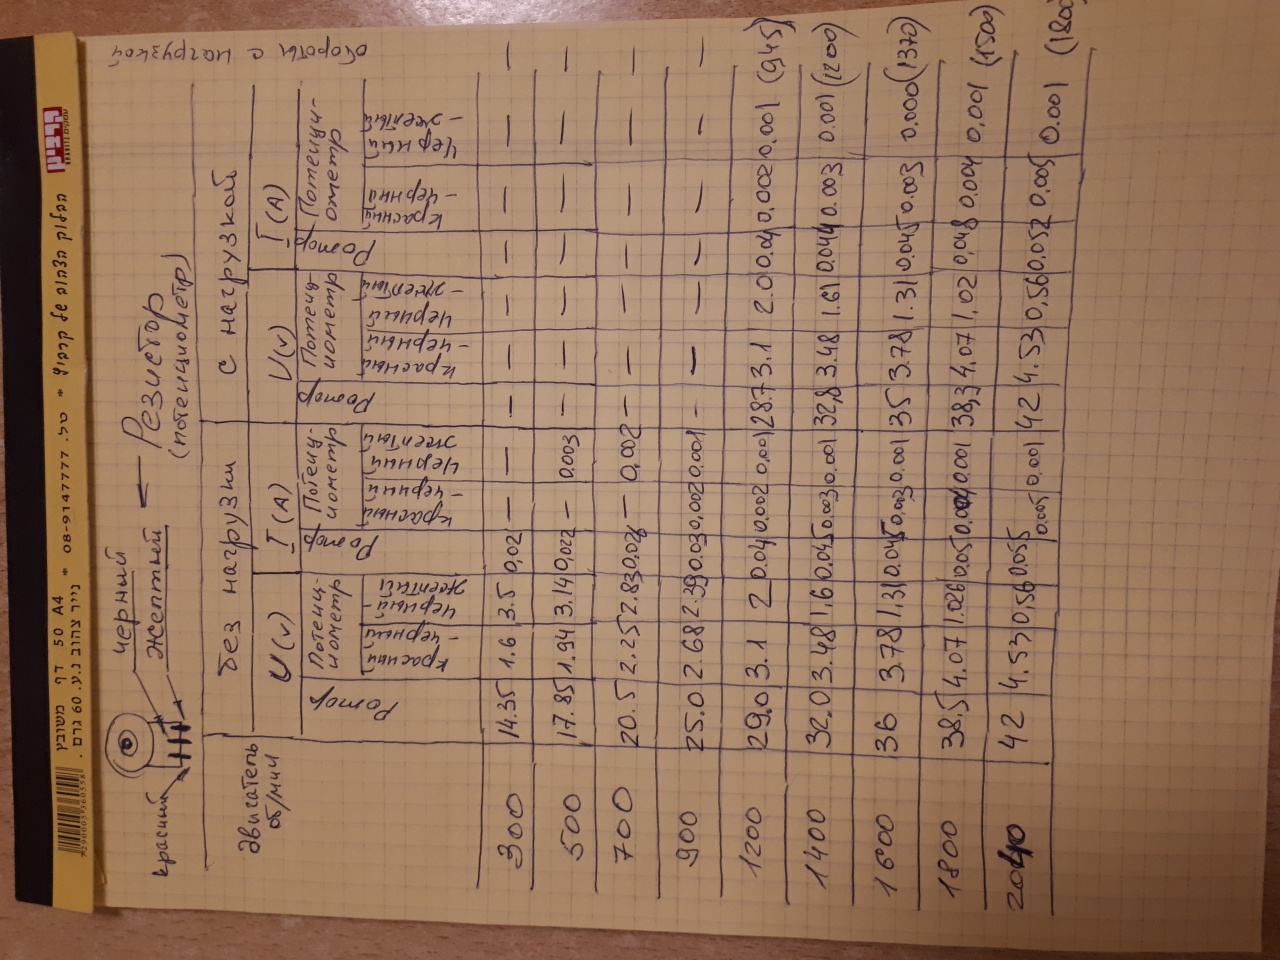 הרציון
הקלוק הצהוב של קרביץ * טל. 08-9147777 * נייר צהוב נ.ע. 60 גרם.
A4 50 דף משובץ
7290003960558
черный
желтый
красный
Резистор
(потенциометр)
Двигатель об/мин
без нагрузки
с нагрузкой
обороты с нагрузкой
U(v) I(A) U(v) I(A)
Ротор Потенц-иометр Ротор Потенц-иометр Ротор Потенц-иометр Ротор Потенци-ометр
красный-черный черный-желтый красный-черный черный желтый красный-черный черный-желтый красный-черный черный-желтый
300 14.35 1.6 3.5 0,02 — — — — — — — — —
500 17.85 1.94 3.14 0,022 — 0.003 — — — — — — —
700 20.5 2.25 2.83 0.026 — 0,002 — — — — — — —
900 25.0 2.68 2.39 0.03 0,002 0.001 — — — — — — —
1200 29.0 3.1 2 0.04 0,002 0,001 28.7 3.1 2.0 0.04 0.002 0.001 (945)
1400 32.0 3.48 1,6 0.045 0.003 0.001 32,8 3.48 1.61 0.044 0.003 0.001 (1200)
1600 36 3.78 1,31 0.045 0.003 0.001 35 3.78 1.31 0.045 0.003 0.000 (1370)
1800 38,5 4.07 1.026 0.05 0.004 0.001 38,3 4.07 1,02 0,048 0.004 0,001 (1500)
2040 42 4.53 0,56 0.055 0.005 0.001 42 4.53 0,56 0.052 0.005 0.001 (1800)